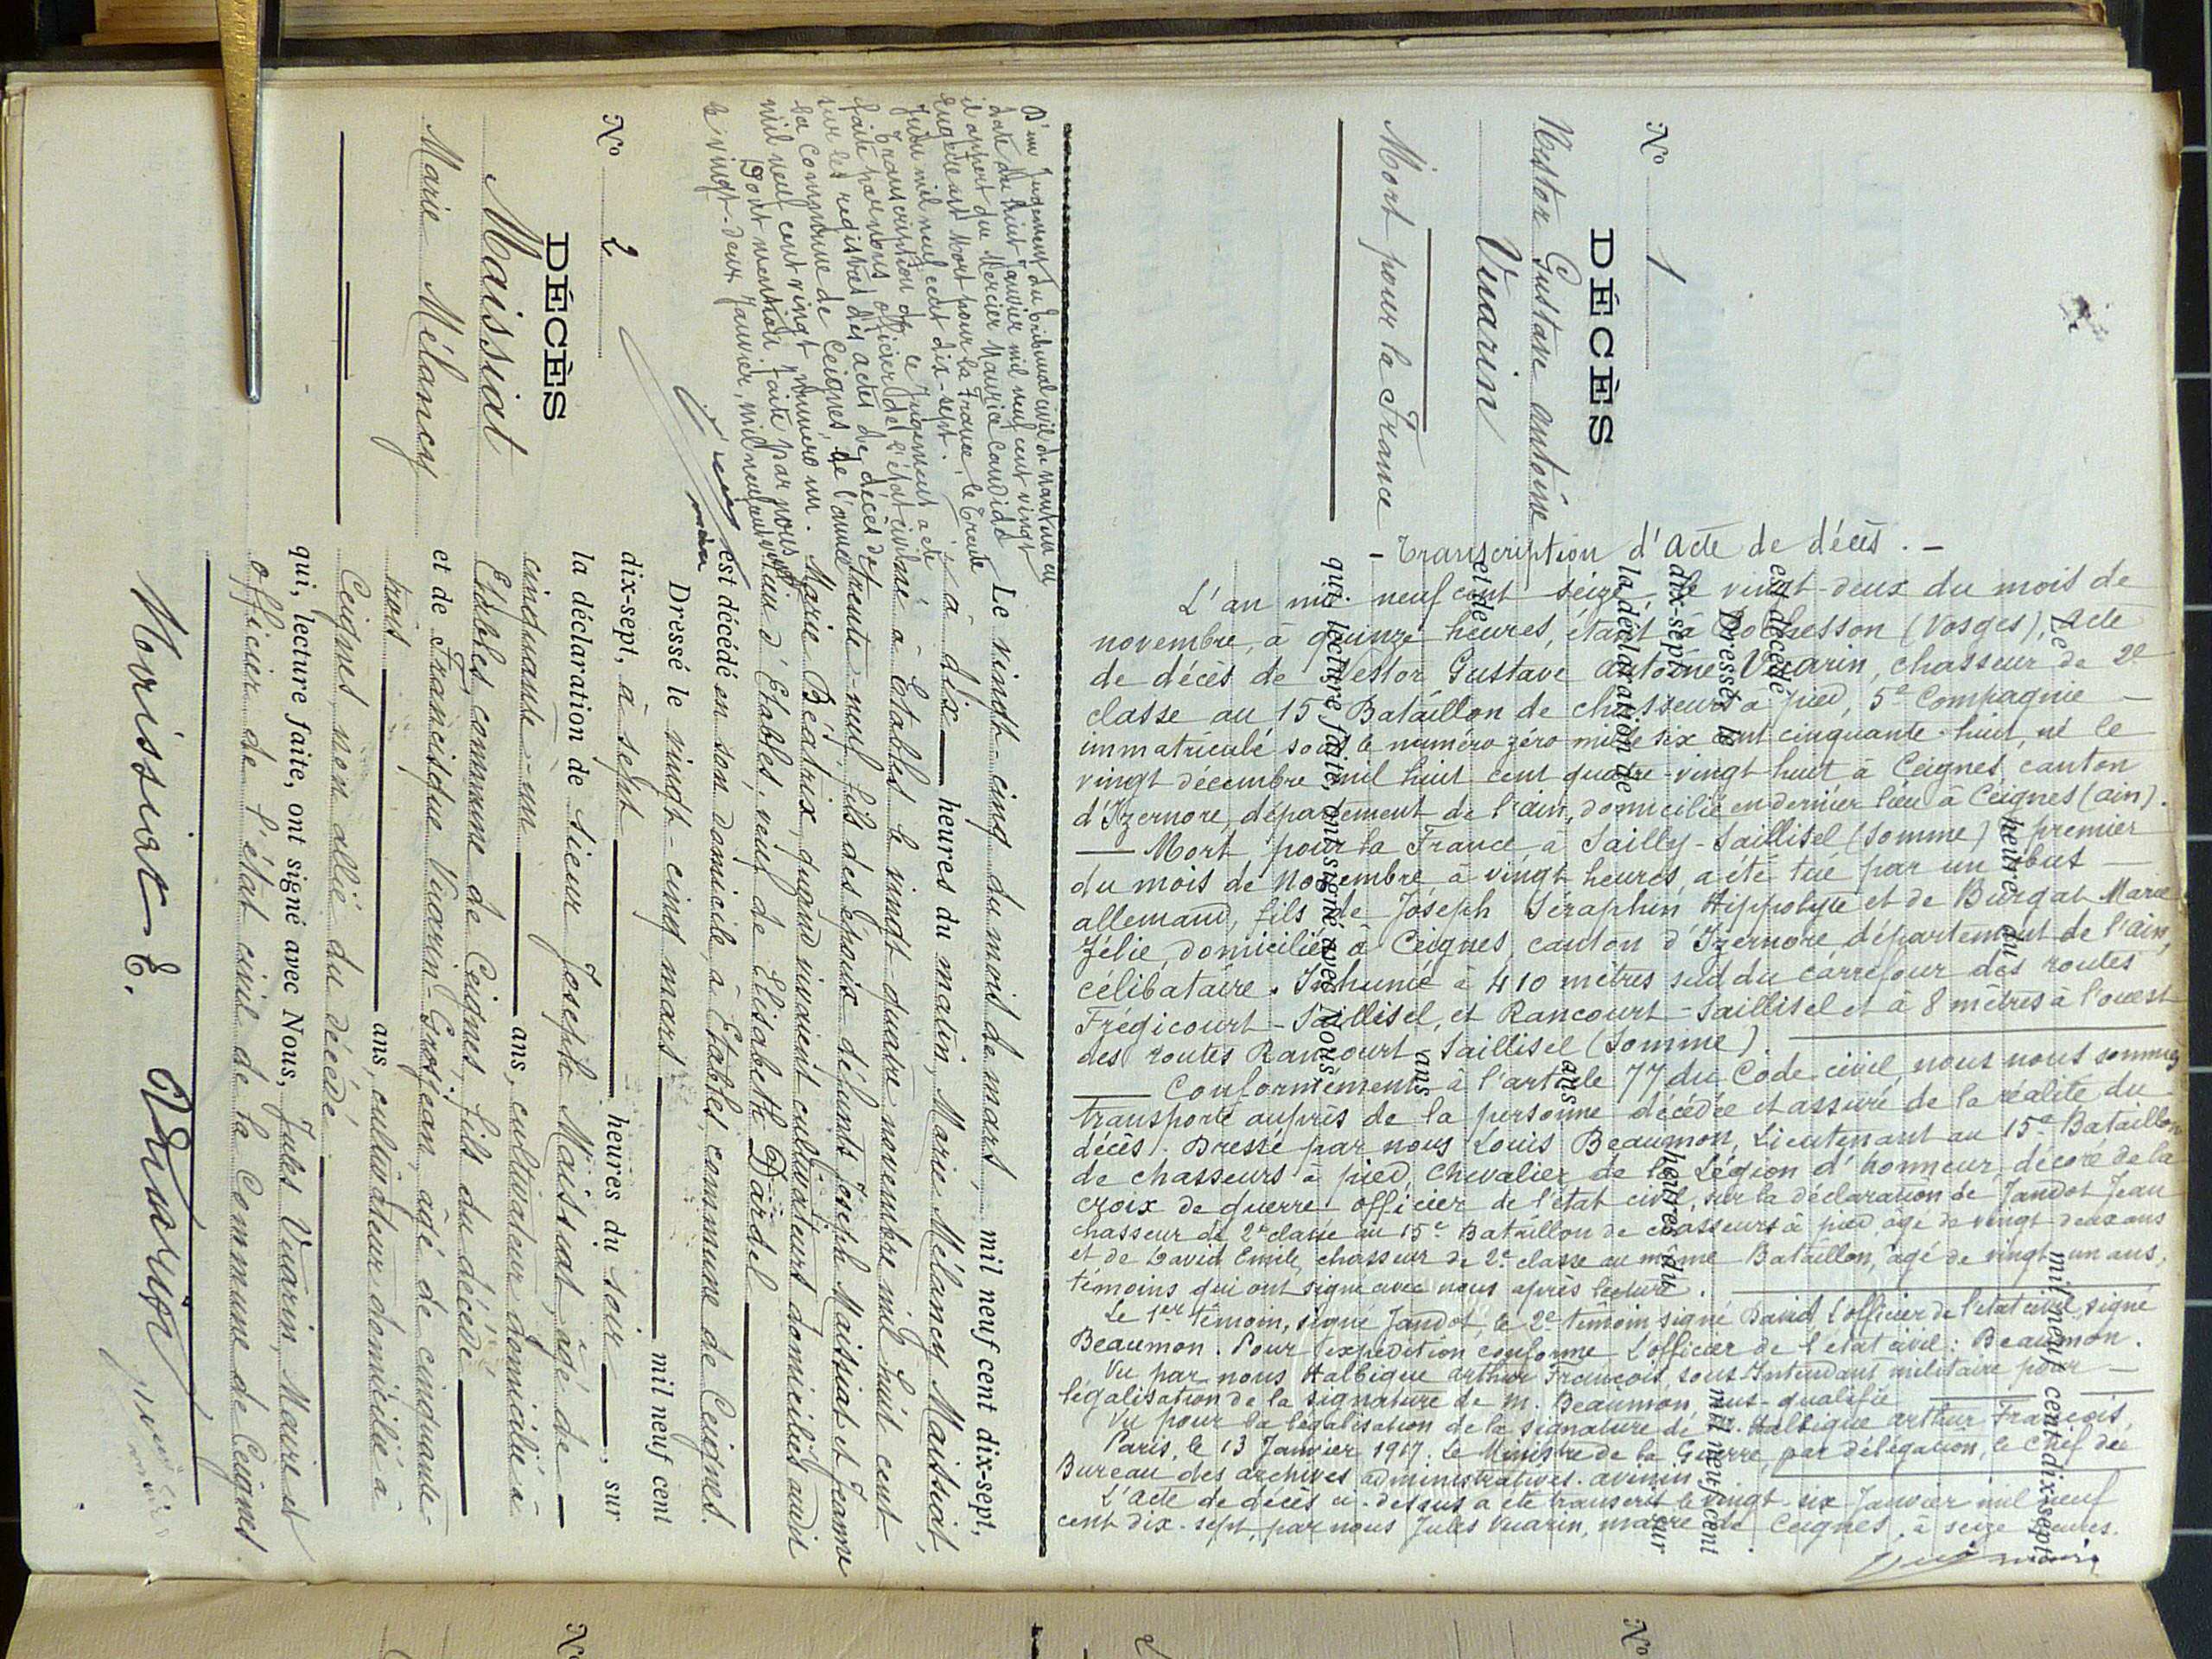 N° 1
DÉCÈS
Nestor Gustave Antoine
Vuarin
Mort pour la France
- Transcription d'Acte de décès. -
L'an mil neuf cent seize le vingt-deux du mois de
novembre, à quinze heures, étant à Rochesson (Vosges), Acte
de décès de Nestor Gustave Antoine Vuarin, chasseur de 2e
classe au 15e Bataillon de chasseurs à pied, 5e Compagnie —
immatriculé sous le numéro zéro mille six cent cinquante-huit, né le
vingt décembre mil huit cent quatre-vingt-huit à Ceignes, canton
d'Izernore, département de l'ain, domicilié en dernier lieu à Ceignes (ain).
— Mort pour la France à Sailly-Saillisel (Somme) le premier
du mois de Novembre à vingt heures, a été tué par un obus —
allemand, fils de Joseph Séraphin Hippolyte et de Burgat Marie
Zélie, domiciliés à Ceignes, canton d'Izernore département de l'ain,
célibataire. Inhumé à 410 mètres sud du carrefour des routes
Frégicourt-Saillisel, et Rancourt-Saillisel et à 8 mètres à l'ouest
des routes Rancourt-Saillisel (Somme).
— Conformément à l'article 77 du Code civil, nous nous sommes
transporté auprès de la personne décédée et assuré de la réalité du
décès. Dressé par nous Louis Beaumon, Lieutenant au 15e Bataillon
de chasseurs à pied, Chevalier de la Légion d'honneur, décoré de la
croix de guerre officier de l'état civil, sur la déclaration de Jandot Jean
chasseur de 2e classe au 15e Bataillon de chasseurs à pied, âgé de vingt deux ans
et de David Emile, chasseur de 2e classe au même Bataillon, âgé de vingt un ans,
témoins qui ont signé avec nous après lecture.
Le 1er témoin, signé Jandot, le 2e témoin signé David L'officier de l'état civil signé
Beaumon. Pour expédition conforme L'officier de l'état civil: Beaumon.
Vu par nous Halbique arthur François, sous Intendant militaire pour —
légalisation de la signature de M. Beaumon, sus-qualifié
Vu pour la légalisation de la signature de M. Halbique arthur François,
Paris, le 13 Janvier 1917. Le Ministre de la Guerre, par délégation, le Chef du
Bureau des archives administratives.
L'acte de décès ci-dessus a été transcrit le vingt-six Janvier mil neuf
cent dix-sept, par nous Jules Vuarin, maire de Ceignes, à seize heures.
Le
heures du
mil neuf cent dix-sept
est décédé
Dressé le
mil neuf cent
dix-sept
heures du
sur
la déclaration de
ans
et de
ans
qui, lecture faite, ont signé avec Nous
D'un Jugement du tribunal civil de Nantua en
date du huit Janvier mil neuf cent vingt
il appert du Mercier Maurice Candide
Eugène est Mort pour la France, le trente
Juin mil neuf cent dix-sept.
Transcription de ce Jugement a été
faite par nous, officier de l'état civil
sur les registres des actes de décès de
la commune de Ceignes, de l'année
mil neuf cent vingt numéro un.
Dont mention faite par nous
le vingt-deux Janvier, mil neuf cent vingt
N° 2
DÉCÈS
Maissiat
Marie Mélancy
Le vingt-cinq du mois de mars mil neuf cent dix-sept,
à dix heures du matin, Marie Mélancy Maissiat,
né à Etables le vingt-quatre novembre mil huit cent
trente-neuf, fils des époux défunts Joseph Maissiat et Jeanne
Marie Béatrix, quand vivaient cultivateurs domiciliés audit
lieu d'Etables, veuf de Elisabeth Dardel
est décédé en son domicile, à Etables, commune de Ceignes.
Dressé le vingt-cinq mars mil neuf cent
dix-sept, à sept heures du soir, sur
la déclaration de sieur Joseph Maissiat, âgé de
cinquante-un ans, cultivateur domicilié à
Etables, commune de Ceignes, fils du décédé
et de Francisque Vuarin-Grosjean, âgé de cinquante
trois ans, cultivateur domicilié à
Ceignes, non allié du décédé
qui, lecture faite, ont signé avec Nous, Jules Vuarin, Maire et
officier de l'état civil de la Commune de Ceignes
Morissiat E. Vuarin
N°
N°